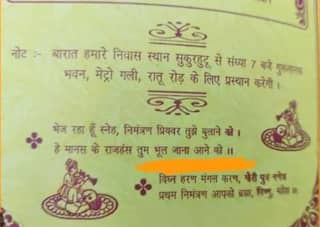 नोट :- बारात हमारे निवास स्थान सुकुरहुटू से संध्या 7 बजे गुरूनानक
भवन, मेट्रो गली, रातू रोड़ के लिए प्रस्थान करेगी ।
भेज रहा हूँ स्नेह, निमंत्रण प्रियवर तुझे बुलाने को ।
हे मानस के राजहंस तुम भूल जाना आने को ।।
विघ्न हरण मंगल करण, पुत्र गणेश
प्रथम निमंत्रण आपको ब्रह्मा, विष्णु, महेश